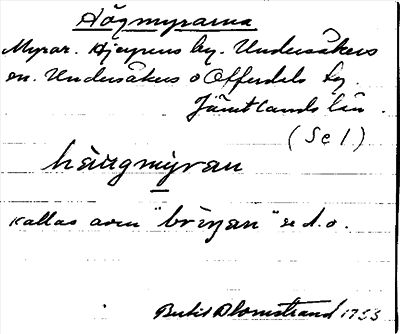 Högmyrarna
Myrar. Hjerpens by. Undersåkers
sn. Undersåkers o Offerdals tg.
Jämtlands län.
(Se 1)
häugmýran
kallas även "brýnan" se d.o.
Bertil Blomstrand 1933